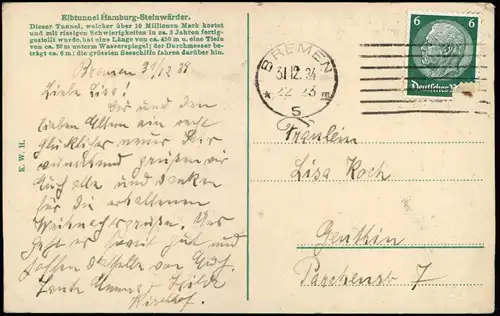 Elbtunnel Hamburg-Steinwärder.
Dieser Tunnel, welcher über 10 Millionen Mark kostet
und mit riesigen Schwierigkeiten in ca. 3 Jahren fertig-
gestellt wurde, hat eine Länge von ca. 450 m u. eine Tiefe
von ca. 20 m unterm Wasserspiegel; der Durchmesser be-
trägt ca. 6 m; die grössten Seeschiffe fahren darüber hin.
Bremen 31/12
Liebe Lisa!
Dir und den
lieben Eltern ein recht
glückliches neues Jahr
wünschend grüßen wir
Euch alle und danken
für die erhaltenen
Weihnachtsgrüße. Uns
geht es soweit gut und
hoffen dasselbe von Euch.
Tante
K. W. H.
BREMEN
31.12.34
22-23
5
6
6
Deutsches Reich
Fräulein
Lisa Koch
Genthin
Parchenstr 7